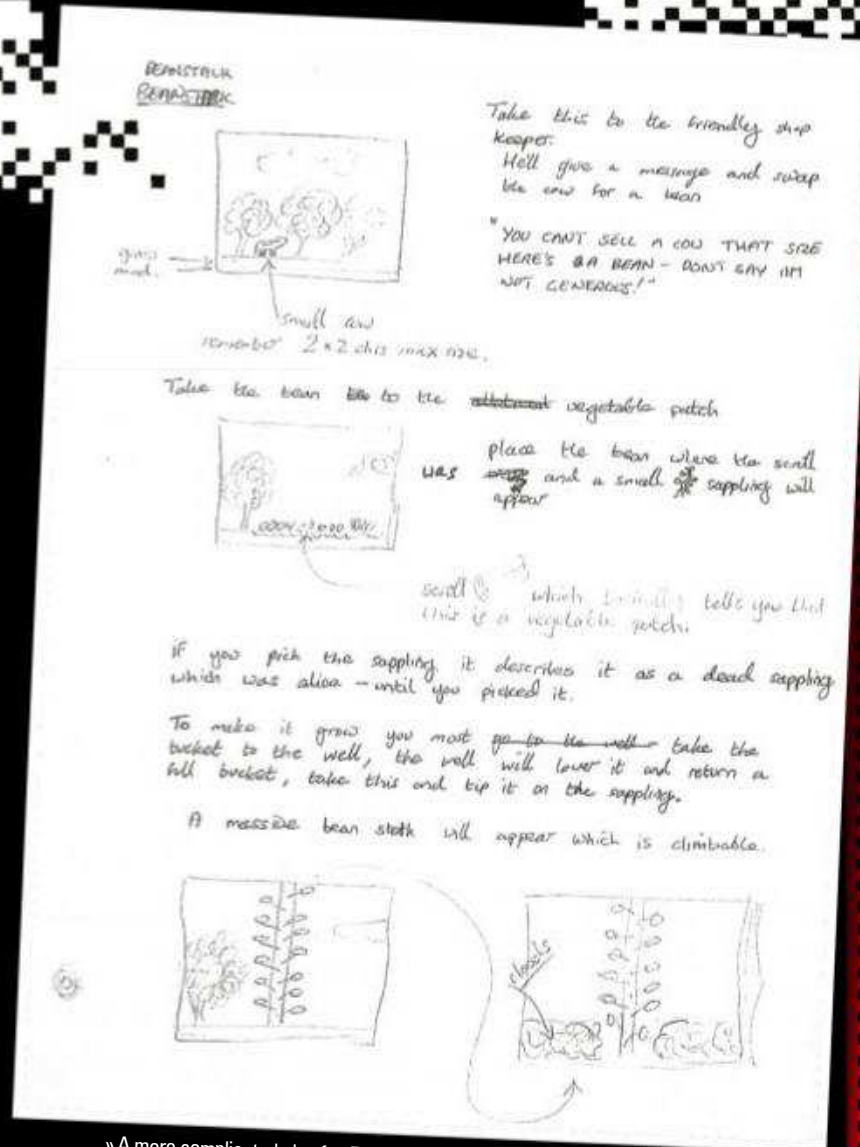 BEANSTALK
BEANSTALK
Take this to the friendly shop
keeper.
He'll give a message and swap
the cow for a bean
"YOU CANT SELL A COW THAT SIZE
HERE'S A BEAN - DONT SAY IM
NOT GENEROUS!"
grass
mud.
small cow
remember 2 x 2 chrs max size.
Take the bean to the allotment vegetable patch
place the bean where the scroll
was and a small sappling will
appear
scroll which briefly tells you that
this is a vegetable patch.
if you pick the sappling it describes it as a dead sappling
which was alive - until you picked it.
To make it grow you most go to the well take the
bucket to the well, the well will lower it and return a
full bucket, take this and tip it on the sappling.
A massive bean stalk will appear which is climbable.
clouds
» A more complicated